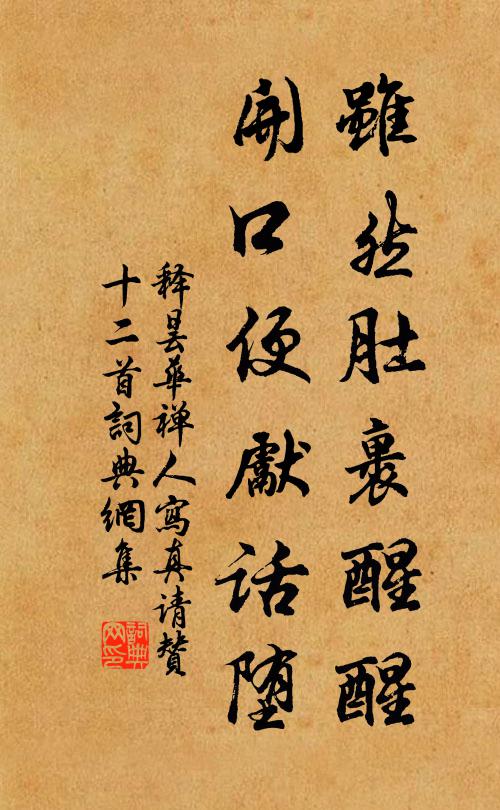 雖然肚裏醒醒
開口便獻话堕
释昙華禅人寫真请贊
十二首詞典網集
詞典
网印